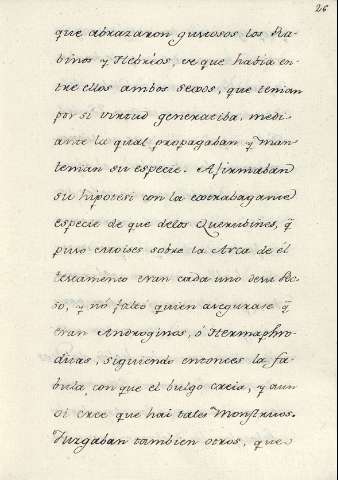 26
que abrazaron gustosos los Ra-
binos y Hebréos, se que habia en-
tre ellos ambos sexos, que tenian
por sí virtud generatiba, medi-
ante la qual propagaban y man-
tenian su especie. Afirmaban
su hipotesi con la extrabagante
especie de que delos Querubines, q̃
puso Moises sobre la Arca de él
testamento eran cada uno desu Sec-
so, y nó faltó quien asegurase q̃
eran Androginos, ó Hermaphro-
ditas, siguiendo entonces la fa-
bula, con que el bulgo creia, y aun
oi cree que hai tales Monstruos.
Juzgaban tambien otros, que